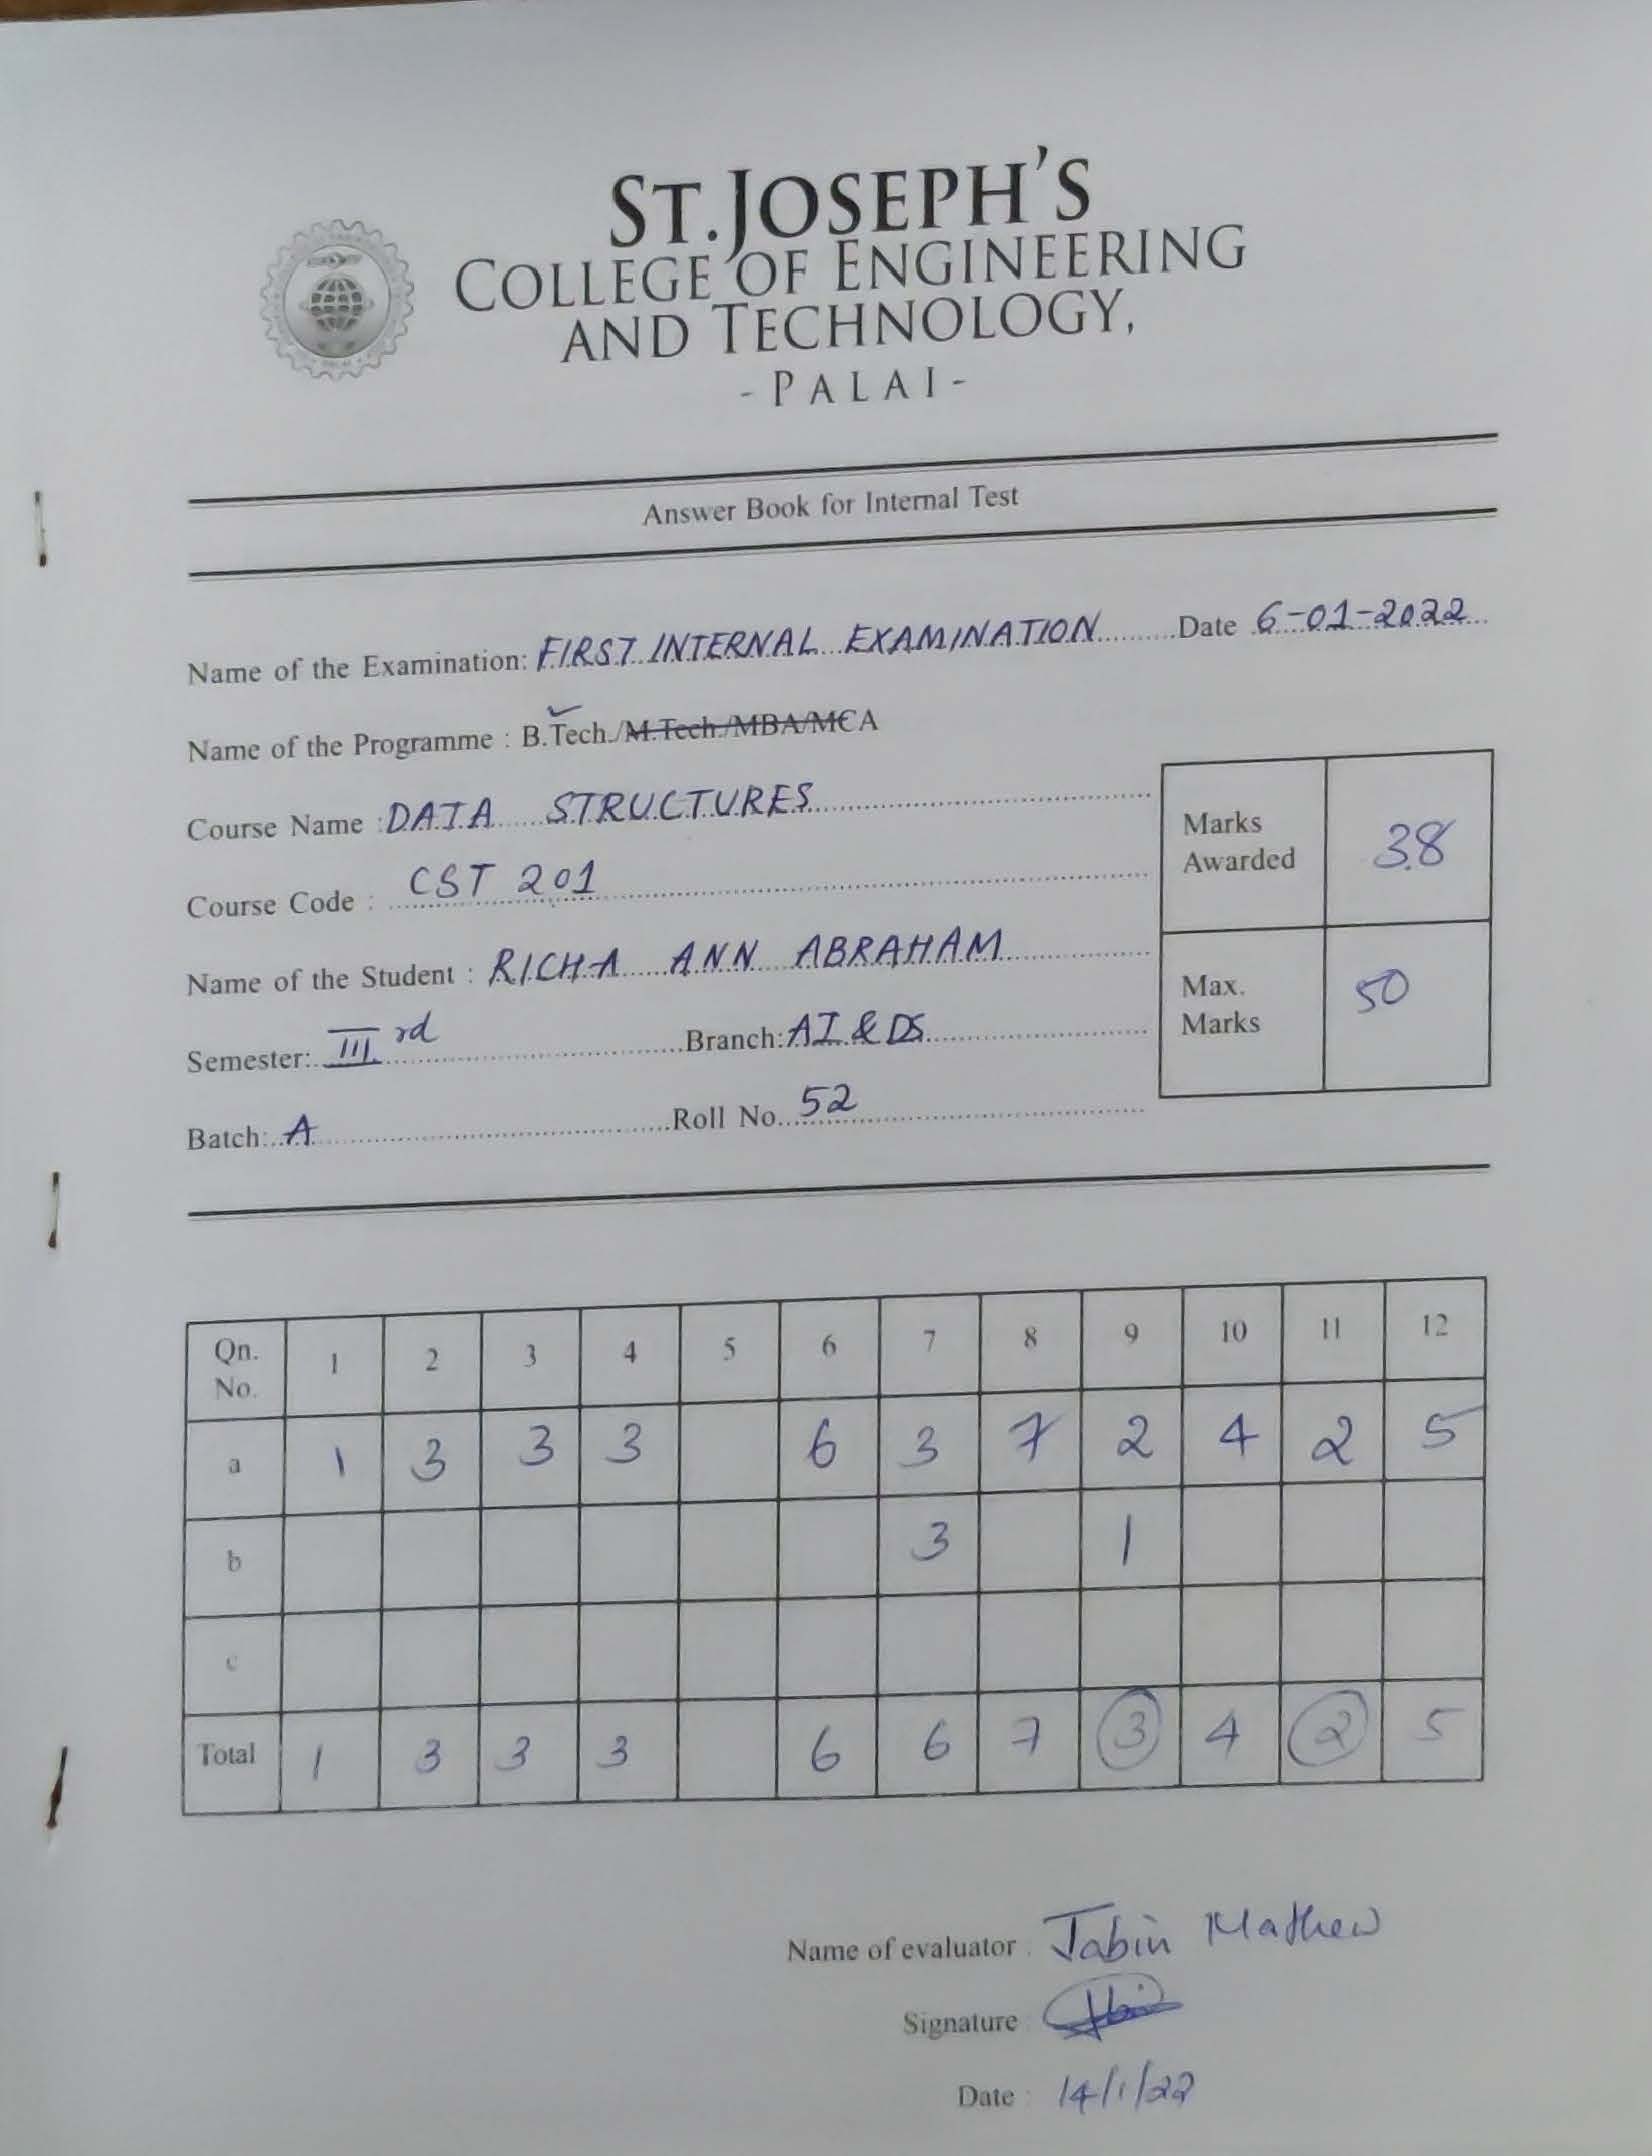 ST. JOSEPH'S
COLLEGE OF ENGINEERING
AND TECHNOLOGY,
- PALAI -
Answer Book for Internal Test
Name of the Examination: FIRST INTERNAL EXAMINATION Date 6-01-2022
Name of the Programme : B.Tech./M.Tech./MBA/MCA
Course Name : DATA STRUCTURES
Course Code : CST 201
Name of the Student : RICHA ANN ABRAHAM
Semester: III rd Branch: AI & DS
Batch: A Roll No. 52
Marks Awarded 38
Max. Marks 50
Qn. No. 1 2 3 4 5 6 7 8 9 10 11 12
a 1 3 3 3 6 3 7 2 4 2 5
b 3 1
c
Total 1 3 3 3 6 6 7 3 4 2 5
Name of evaluator : Jabin Mathew
Signature :
Date : 14/1/22